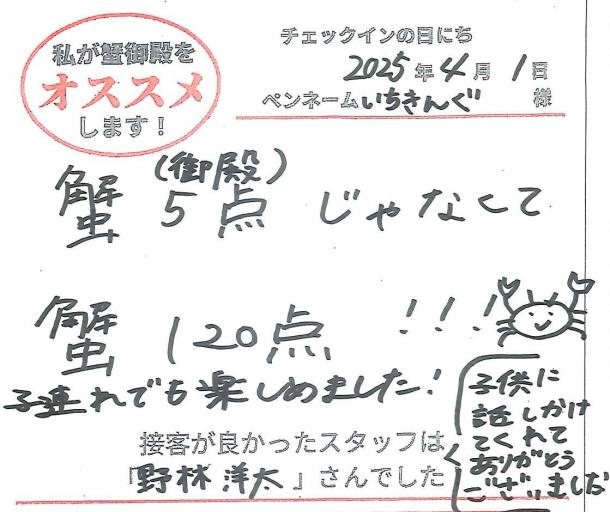 私が蟹御殿を
オススメ
します！
チェックインの日にち
2025年4月1日
ペンネームいちきんぐ様
(御殿)
蟹 5点 じゃなくて
蟹 120点 !!!
子連れでも楽しめました!
接客が良かったスタッフは
「野林 洋太」さんでした
子供に
話しかけ
てくれて
ありがとう
ございました